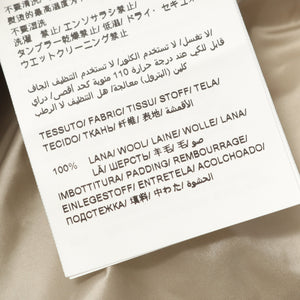 不要清洗
熨烫的最高温度为
洗濯 禁止/ エンソサラシ禁止/
タンブラー乾燥禁止/ 低温/ ドライ、セキユ
ウエットクリーニング禁止
لا تغسل/ لا تستخدم الكلور/ لا تستخدم التنظيف الجاف/
كلي بدرجة حرارة 110 مئوية كحد أقصى/ دراي
كلين (البترول) معالجة/ هل التنظيف لا الرطب
TESSUTO/ FABRIC/ TISSU/ STOFF/ TELA/
TECIDO/ ТКАНЬ/ 纤维/ 表地/ الأقمشة
100% LANA/ WOOL/ LAINE/ WOLLE/ LANA/
LÃ/ ШЕРСТЬ/ 羊毛/ 毛/ صو
IMBOTTITURA/ PADDING/ REMBOURRAGE/
EINLEGESTOFF/ ENTRETELA/ ACOLCHOADO/
ПОДСТЕЖКА/ 填料/ 中わた/ الحشوة